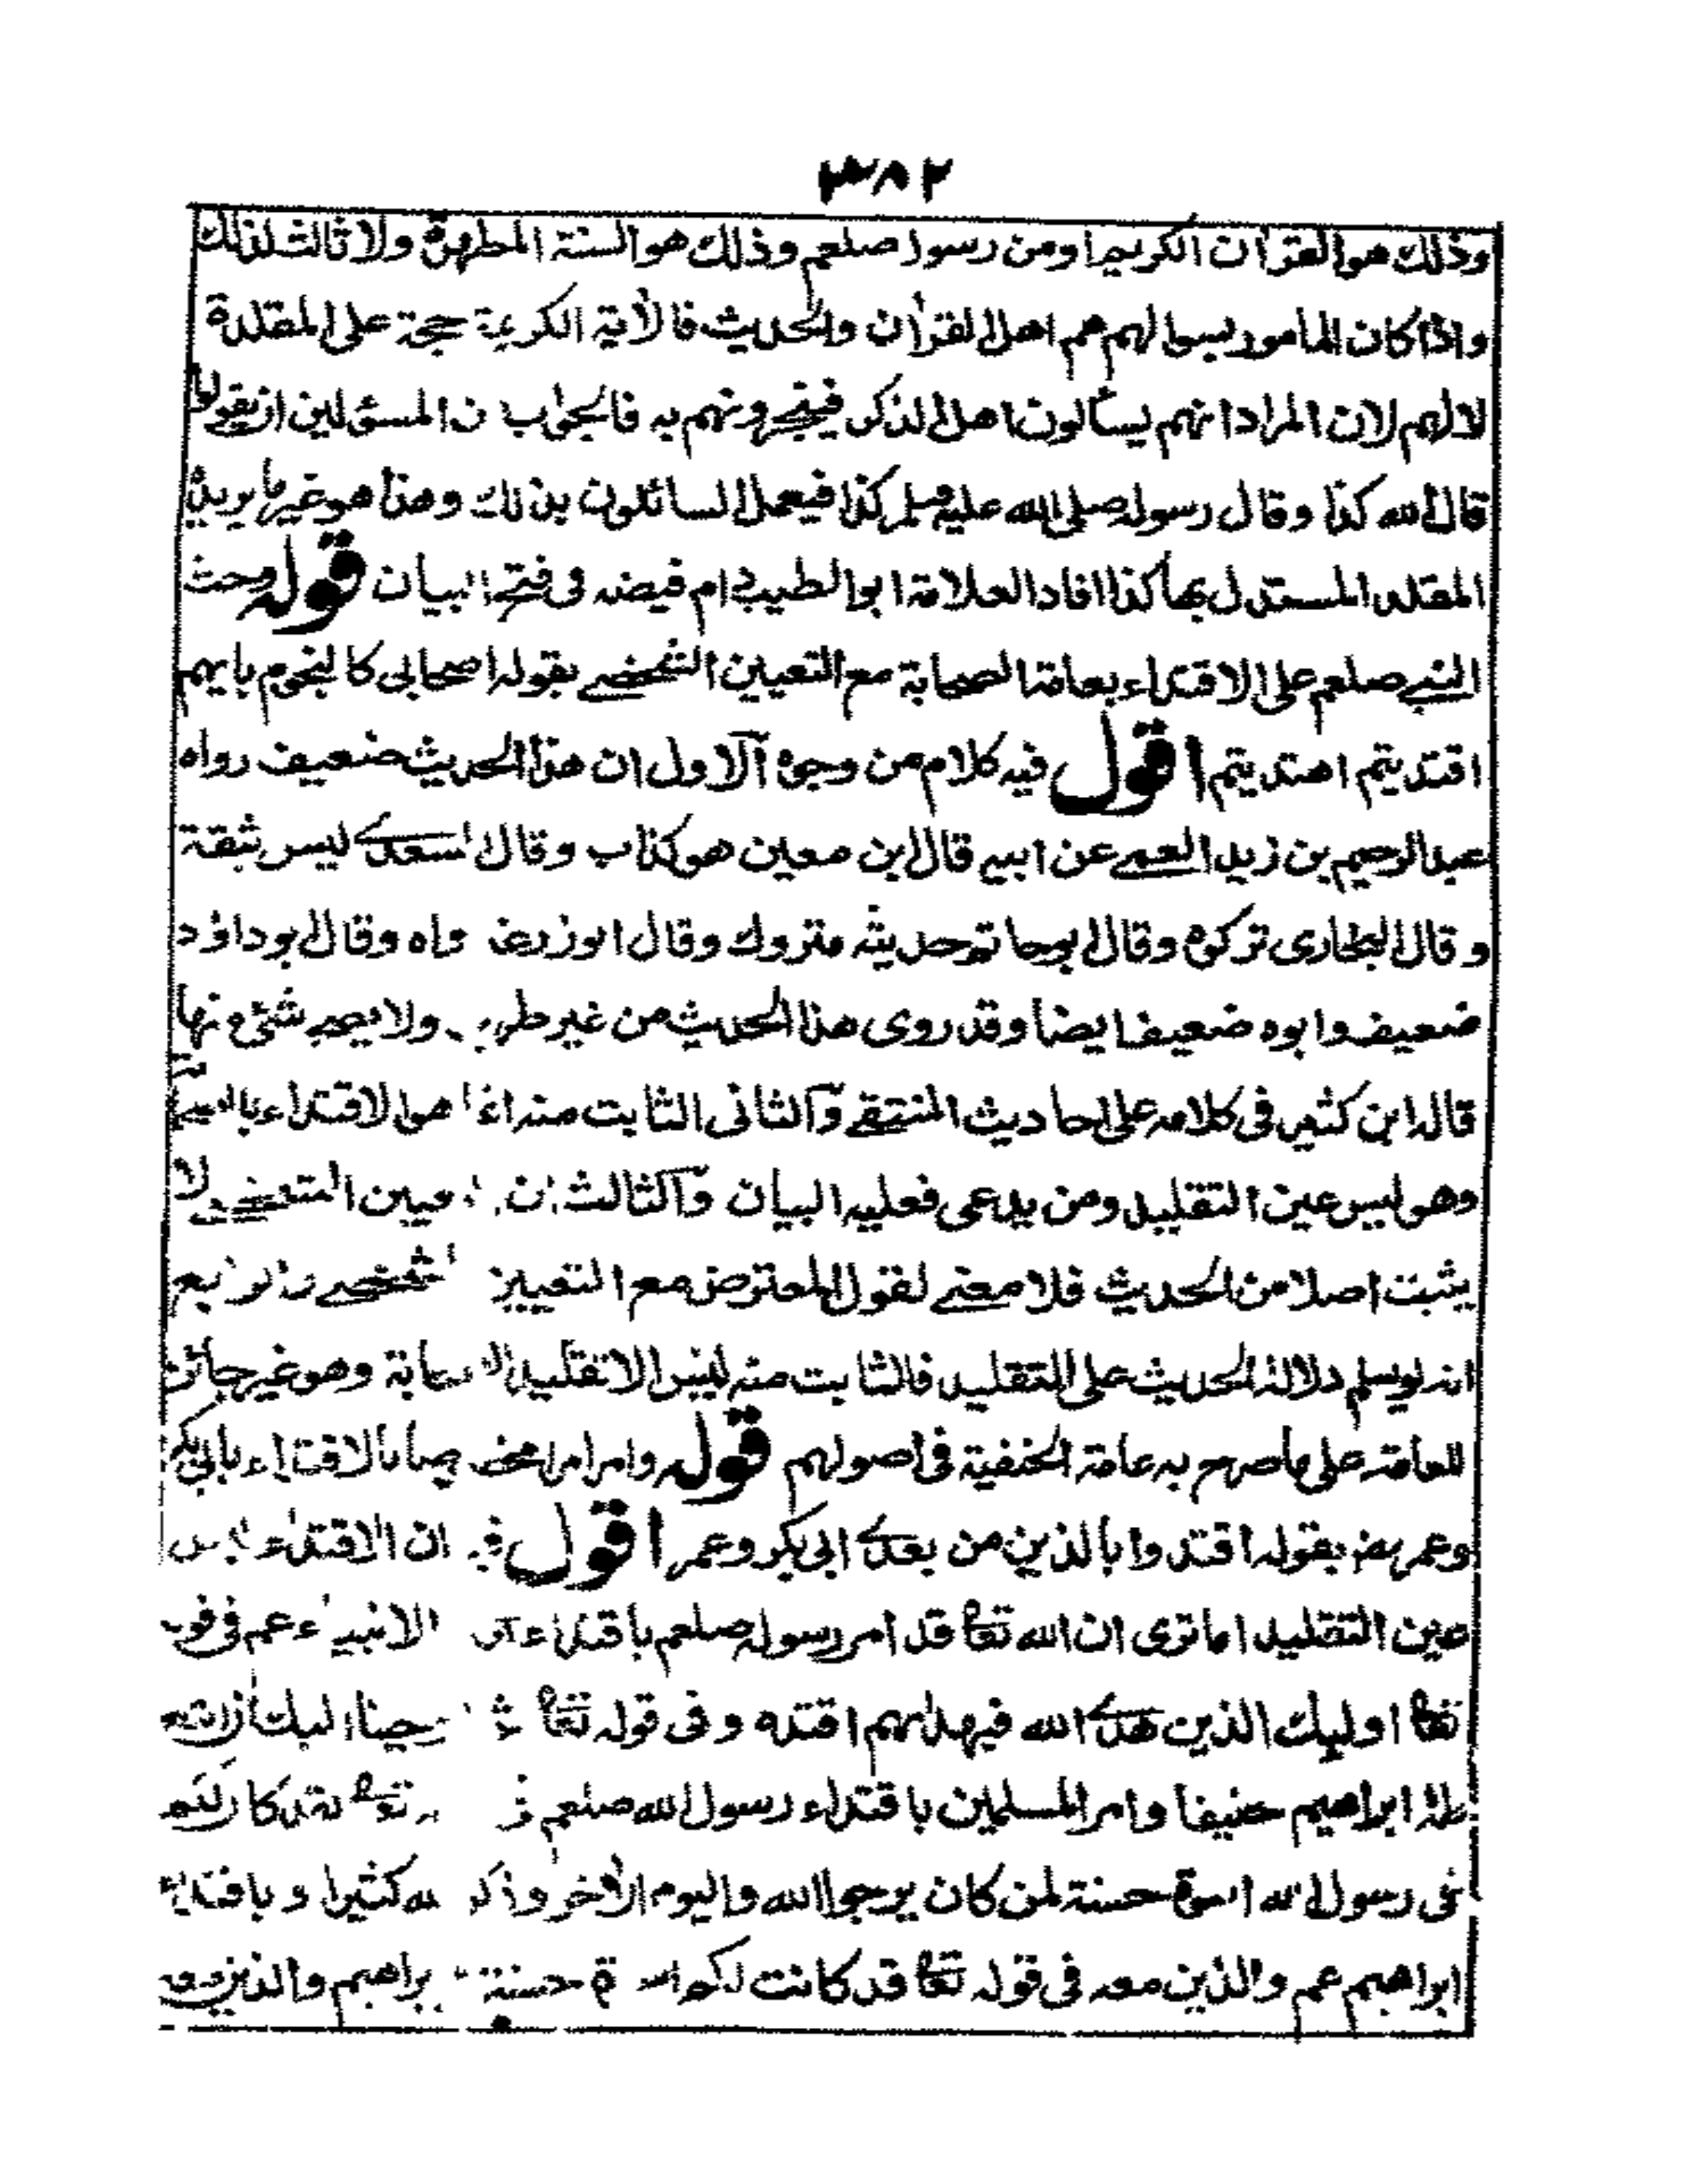 ٣٨٢
وذلك هو القرآن الكريم او من رسوله صلعم وذلك هو السنة المطهرة ولا ثالث لذلك
واذا كان المامور بسوالهم هم اهل القرآن والحديث فالآية الكريمة حجة على المقلدة
لا لهم لان المراد انهم يسألون اهل الذكر فيخبرونهم به فالجواب من المسئولين ان يقولوا
قال الله كذا وقال رسوله صلى الله عليه وسلم كذا فيعمل السائلون بذلك وهذا هو غير ما يريد
المقلد المستدل بها كذا افاد العلامة ابو الطيب دام فيضه فى فتح البيان قوله وحث
النبي صلعم على الاقتداء بعامة الصحابة مع التعيين الشخصے بقوله اصحابى كالنجوم بايهم
اقتديتم اهتديتم اقول فيه كلام من وجوه الاول ان هذا الحديث ضعيف رواه
عبد الرحيم بن زيد العمے عن ابيه قال ابن معين هو كذاب وقال السعدے ليس بثقة
وقال البخارى تركوه وقال ابو حاتم حديثه متروك وقال ابو زرعة واه وقال ابو داؤد
ضعيف وابوه ضعيف ايضا وقد روى هذا الحديث من غير طريق ولا يصح شئ منها
قاله ابن كثير فى كلامه على احاديث المنتقے والثانى الثابت منه انما هو الاقتداء بالصحابة
وهو ليس عين التقليد ومن يدعى فعليه البيان والثالث ان التعيين الشخصے لا
يثبت اصلا من الحديث فلا معنے لقول المعترض مع التعيين الشخصے والرابع
انه لو سلم دلالة الحديث على التقليد فالثابت منه ليس الا تقليد الصحابة وهو غير جائز
للعامة على ما صرح به عامة الحنفية فى اصولهم قوله وامر امرا مخصوصا بالاقتداء بابى بكر
وعمر رض بقوله اقتدوا بالذين من بعدے ابى بكر وعمر اقول فيه ان الاقتداء ليس
عين التقليد اما ترى ان الله تعا قد امر رسوله صلعم باقتداء الانبياء عم فى قوله
تعا اوليك الذين هدے الله فبهداهم اقتده وفى قوله تعا ثم اوحينا اليك ان اتبع
ملة ابراهيم حنيفا وامر المسلمين باقتداء رسول الله صلعم فى قوله تعا لقد كان لكم
فى رسول الله اسوة حسنة لمن كان يرجوا الله واليوم الآخر وذكر الله كثيرا وباقتداء
ابراهيم عم والذين معه فى قوله تعا قد كانت لكم اسوة حسنة فى ابراهيم والذين معه